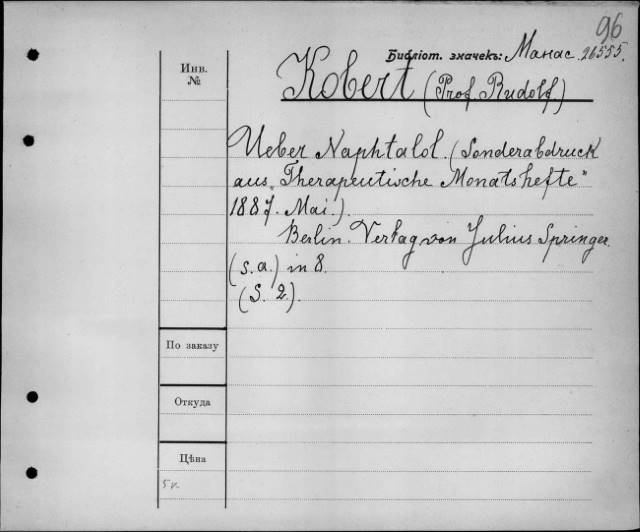 96
Библіот. значекъ: Манас. 26555.
Инв.
№
Kobert (Prof. Rudolf)
Ueber Naphtalol. (Sonderabdruck
aus "Therapeutische Monatshefte"
1887. Mai.).
Berlin. Verlag von Julius Springer.
(s.a.) in 8.
(S. 2.).
По заказу
Откуда
Цѣна